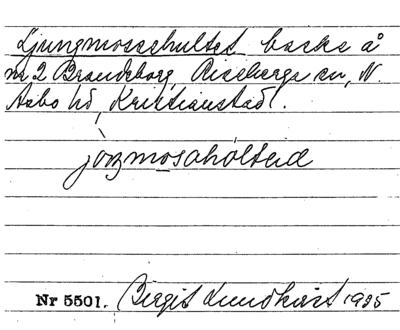 Ljungmosahultet backe å
nr 2 Brandeborg, Riseberga sn, N.
Åsbo hd, Kristianstad l.
jòŋmosahólteid
Nr 5501. Birgit Lundkvist 1935